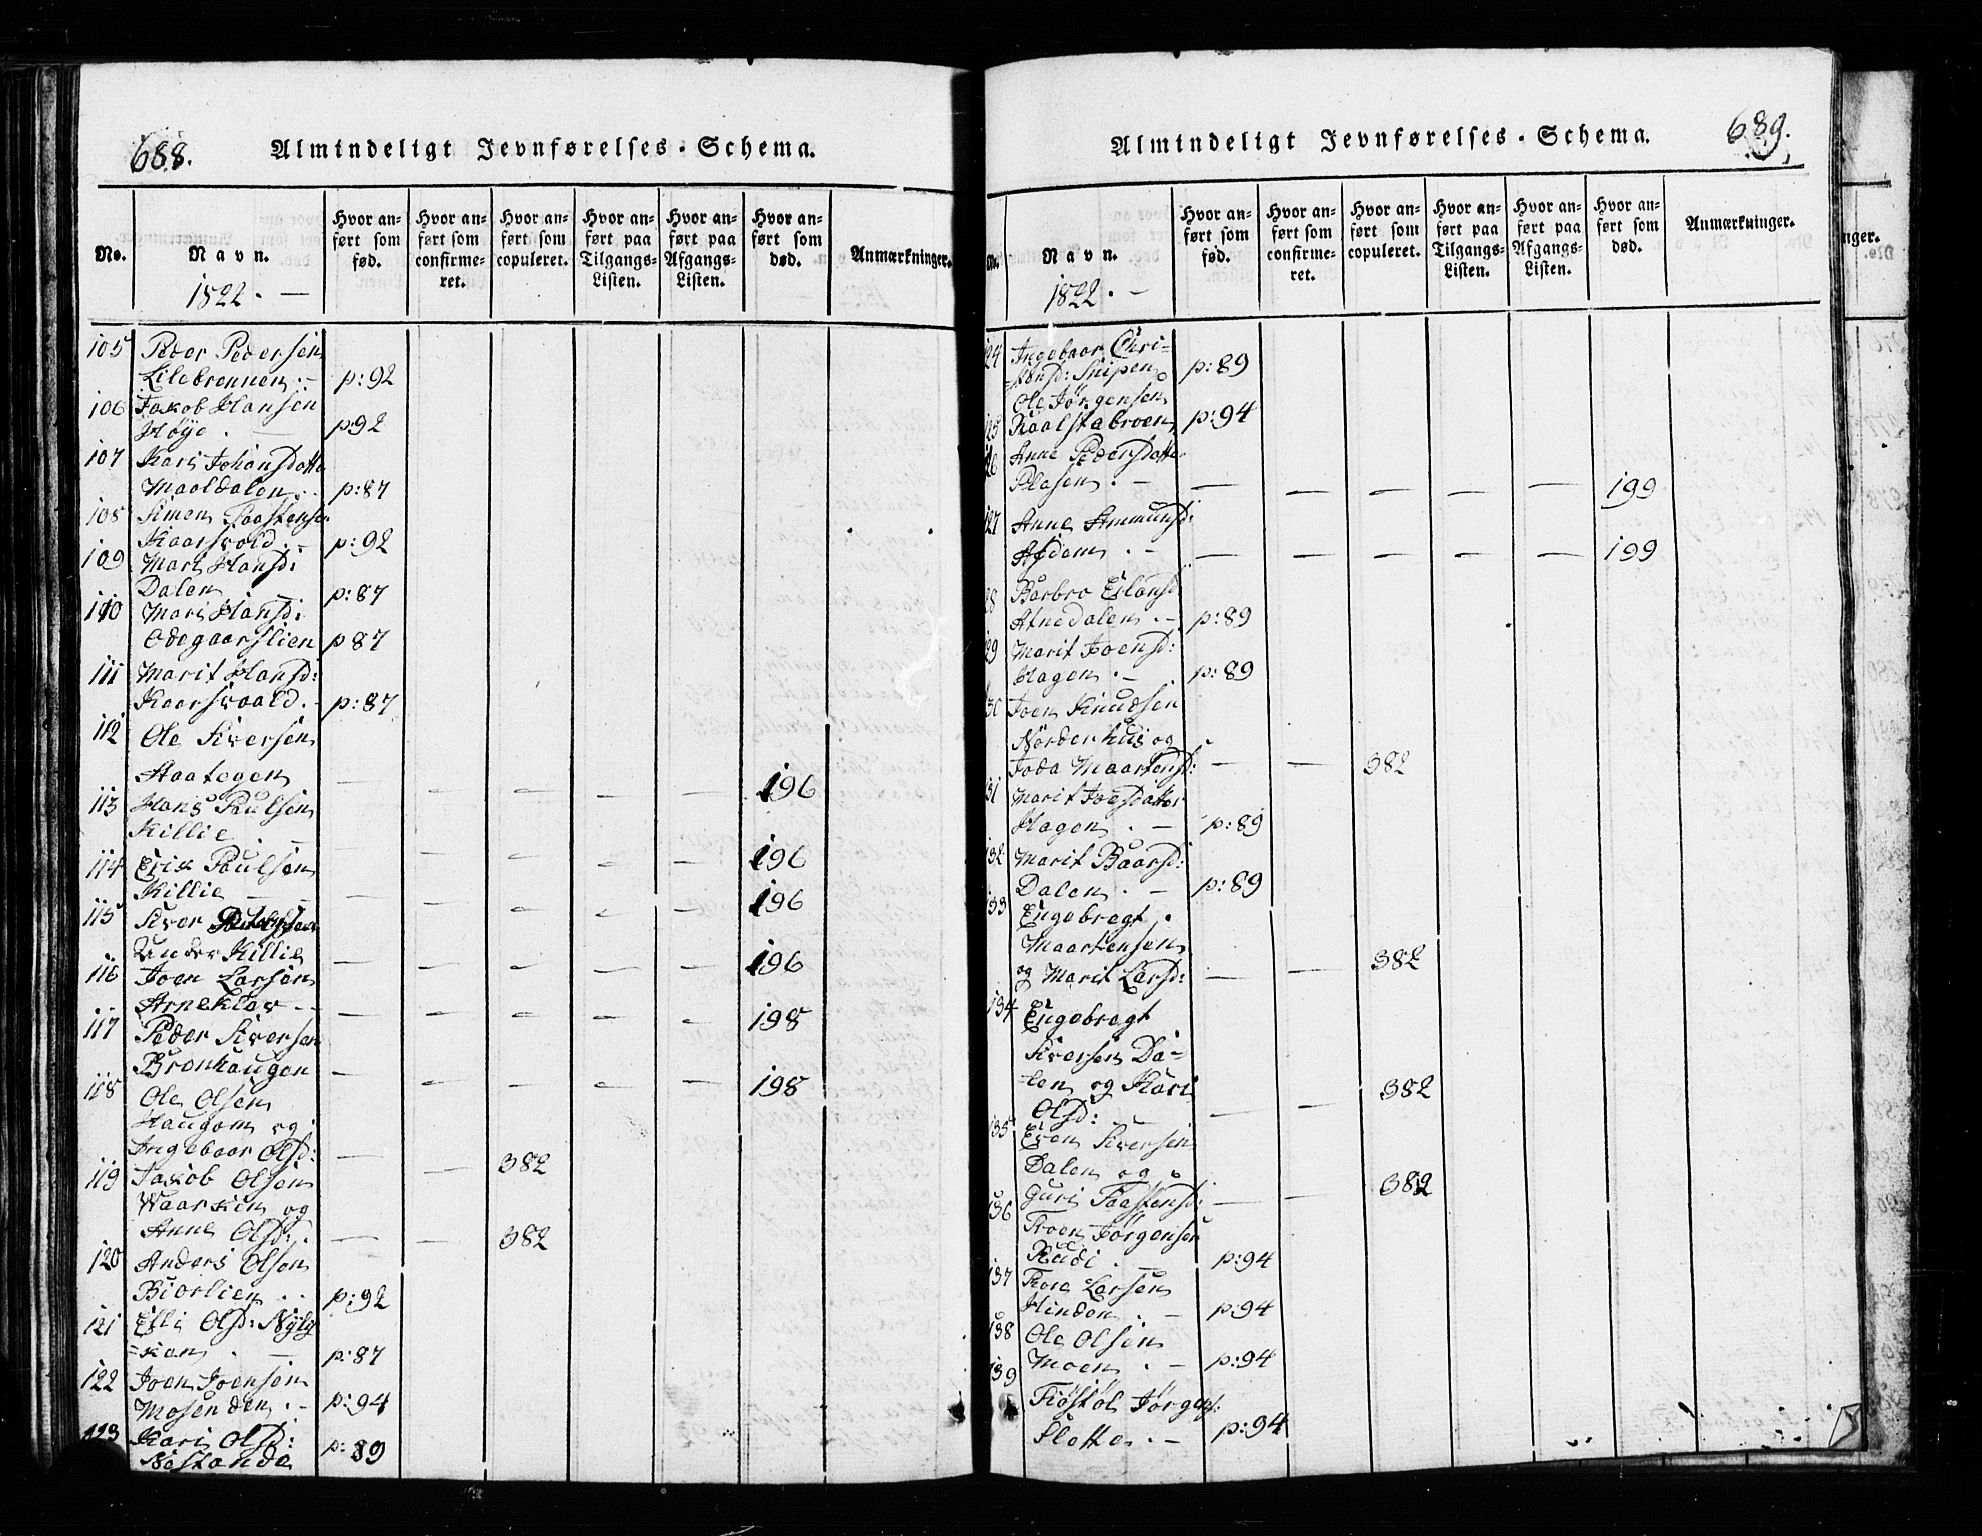 688. Almindeligt Jevnførelses-Schema.
No. Navn. Hvor anført som fød. Hvor anført som confirmeret. Hvor anført som copuleret. Hvor anført paa Tilgangs-Listen. Hvor anført paa Afgangs-Listen. Hvor anført som død. Anmærkninger.
1822. —
105 Peder Pedersen
Lilebrennen. — p:92
106 Jakob Hansen
Høye. — p:92
107 Kari Johansdatter
Maoldalen. . p:87
108 Simen Paastensen
Kaarsvold. — p:92
109 Mari Hansd:
Dalen — p:87
110 Mari Hansd:
Ødegaarslien p87
111 Marit Hansd:
Kaarsvoald. — p:87
112 Ole Siversen
Haatogen — — — — — 196
113 Hans Paulsen
Killie — — — — — — 196
114 Erik Paulsen
Killie — — — — — — 196
115 Siver
Under Killie — — — — — 196
116 Joen Larsen
Arneklev — — — — — — 198
117 Peder Siversen
Bronhaugen — — — — — 198
118 Ole Olsen
Haugom og
Ingebaar Olsd: — — 382
119 Jakob Olsen
Waarkien og
Anne Olsd: . — — 382
120 Anders Olsen
Biorlien . . p:92
121 Elli Olsd: Nylg
=kian . — p:87
122 Joen Joensen
Mosenden . — p:94
123 Kari Olsd:
Nostande p:89
689. Almindeligt Jevnførelses-Schema.
No. Navn. Hvor anført som fød. Hvor anført som confirmeret. Hvor anført som copuleret. Hvor anført paa Tilgangs-Listen. Hvor anført paa Afgangs-Listen. Hvor anført som død. Anmærkninger.
1822. —
124 Ingebaar Chri=
=stensd: Snipen p:89
Ole Jørgensen
125 Kaalstabroen p:94
126 Anne Pedersdatter
Plasen. — — — — — — 199
127 Anne Ammunsd:
Asdam. — — — — — — 199
128 Barbro Erlansd
Atnedalen. — p:89
129 Marit Joensd:
Hagen. — p:89
130 Joen Knudsen
Nørderhus og
Joda Maartensd: — — 382
131 Marit Joesdatter
Hagen . — p:89
132 Marit Baarsd:
Dalen . — p:89
133 Engebregt
Maartensen
og Marit Larsd: — — 382
134 Engebregt
Siversen Da=
=len og Kari
Olsd: — — — 382
135 Even Siversen
Dalen og
Guri Paastensd: — — 382
136 Troen Jørgensen
Rudi . — p:94
137 Tore Larsen
Hinden . — p:94
138 Ole Olsen
Moen . — p:94
139 Kiøstol Jørgens:
Slette. — p:94